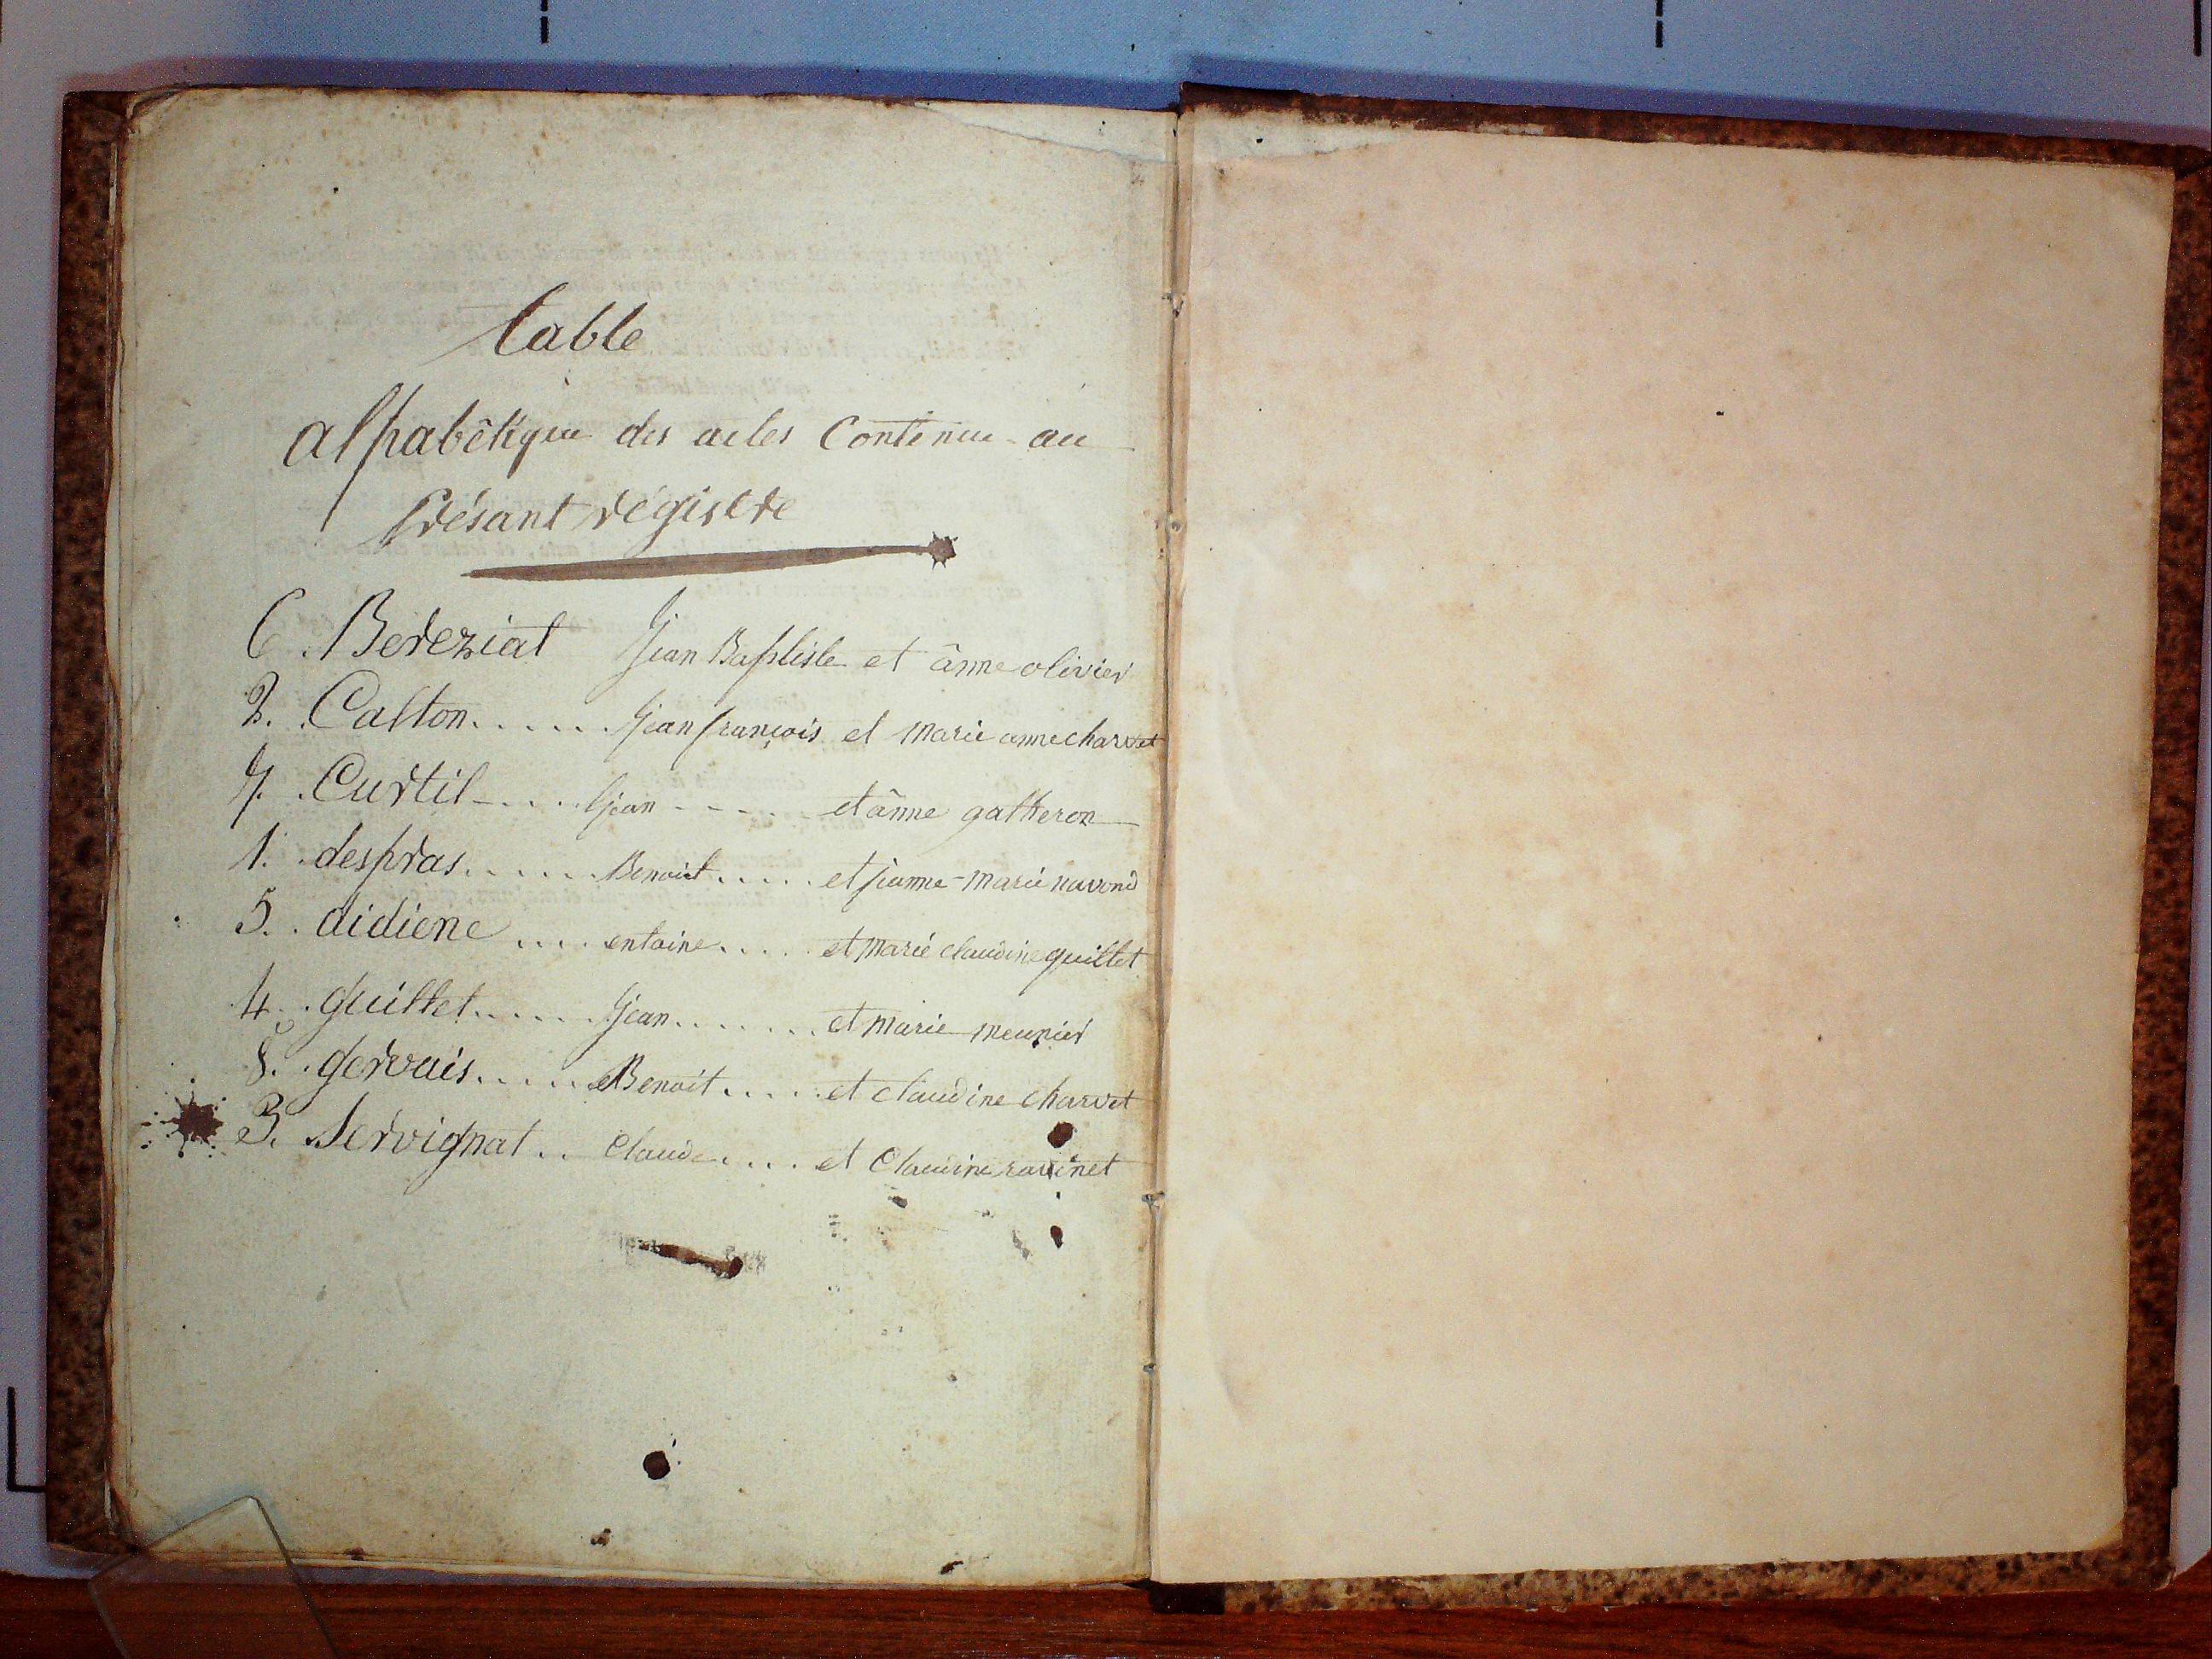 table
alphabêtique des actes Contenue au
Présant régistre
6. Bereziat Jean Baptiste et ânne olivier
2. Catton...... Jean françois et marie anne charvet
7. Curtil..... Jean ..... et ânne gatheron
1. despras...... Benoit..... et jeanne-marie
5. didiene .... entoine.... et marie claudine guillet
4. guillet...... Jean....... et marie meunier
8. gervais..... Benoit..... et claudine charvet
3. Servignat.. Claude.... et Claudine ravinet